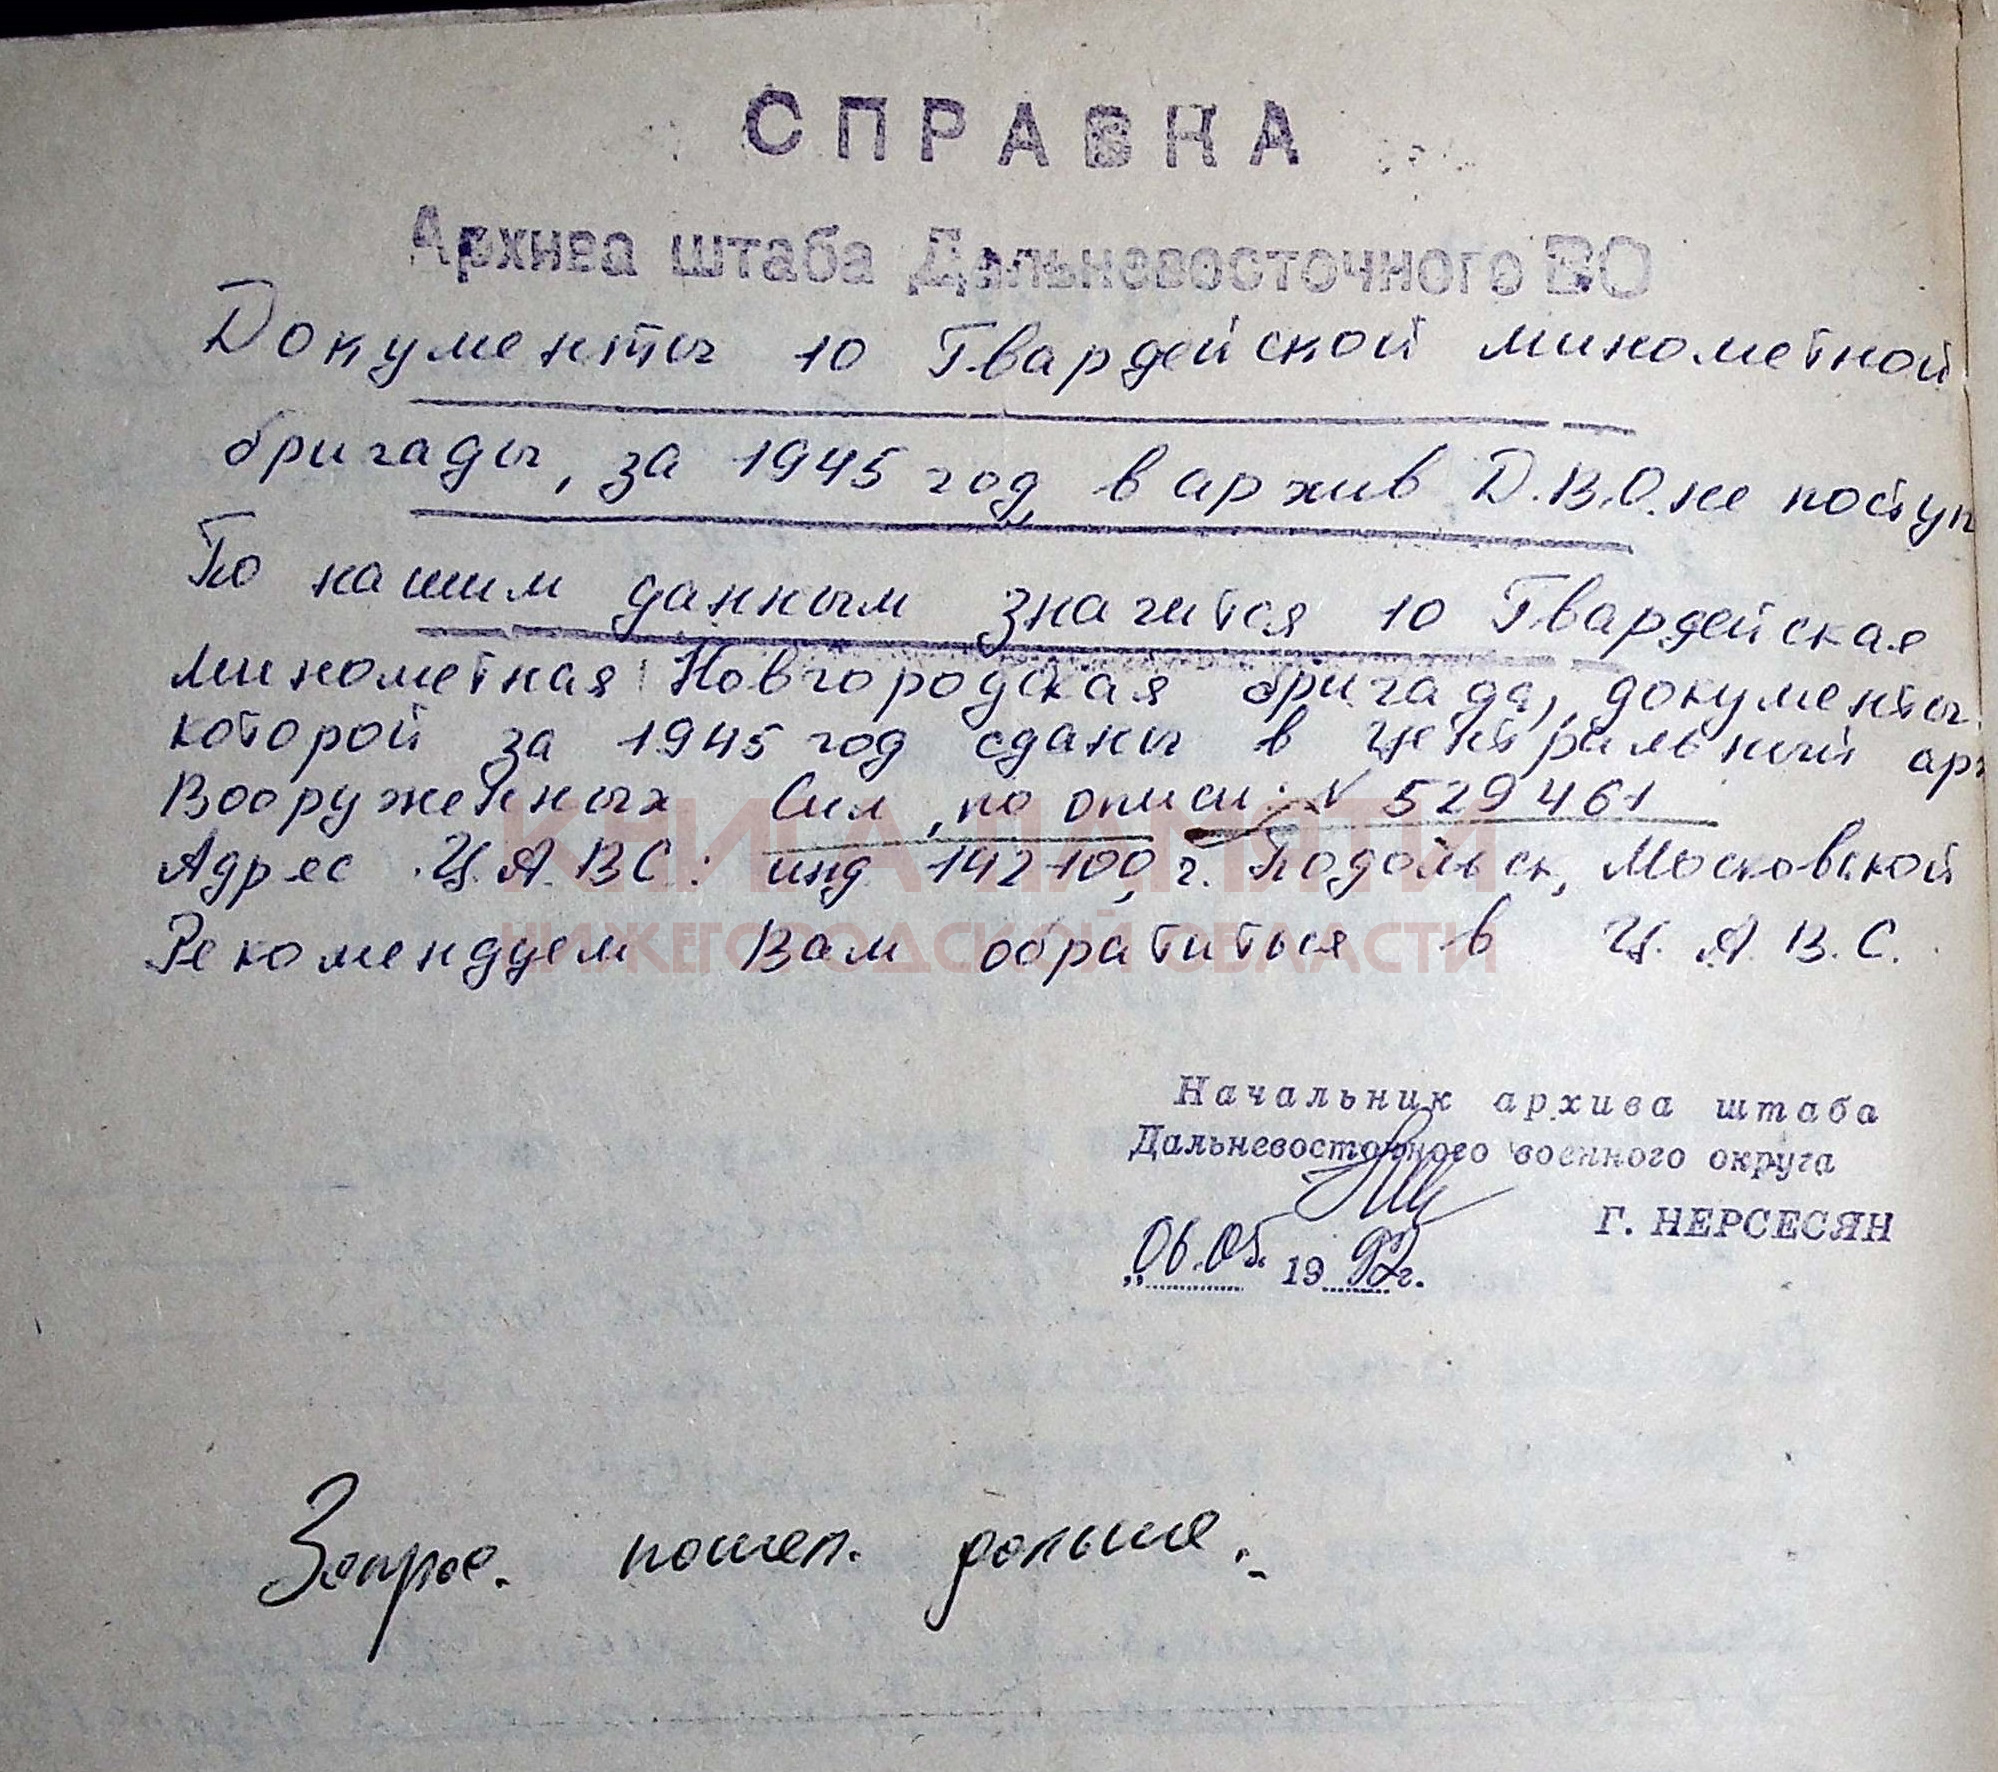 СПРАВКА
Архива штаба Дальневосточного ВО
Документы 10 Гвардейской минометной
бригады, за 1945 год в архив Д.В.О. не поступ
По нашим данным значится 10 Гвардейская
минометная Новгородская бригада, документы
которой за 1945 год сданы в центральный арх
Вооруженных Сил, по описи: № 529461
Адрес Ц.А.ВС: инд 142100, г. Подольск, Московской
Рекомендуем Вам обратиться в Ц.А.В.С.
КНИГА ПАМЯТИ
НИЖЕГОРОДСКОЙ ОБЛАСТИ
Начальник архива штаба
Дальневосточного военного округа
Г. НЕРСЕСЯН
„06.05. 1992г.
Запрос. пошел. дальше.